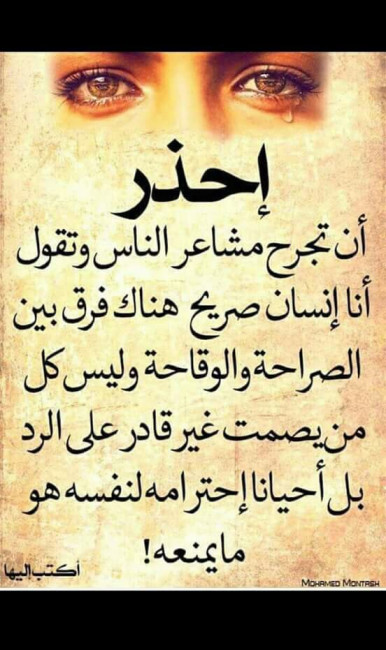 إحذر
أن تجرح مشاعر الناس وتقول
أنا إنسان صريح هناك فرق بين
الصراحة والوقاحة وليس كل
من يصمت غير قادر على الرد
بل أحيانا إحترامه لنفسه هو
مايمنعه!
أكتب إليها
MOHAMED MONTASH